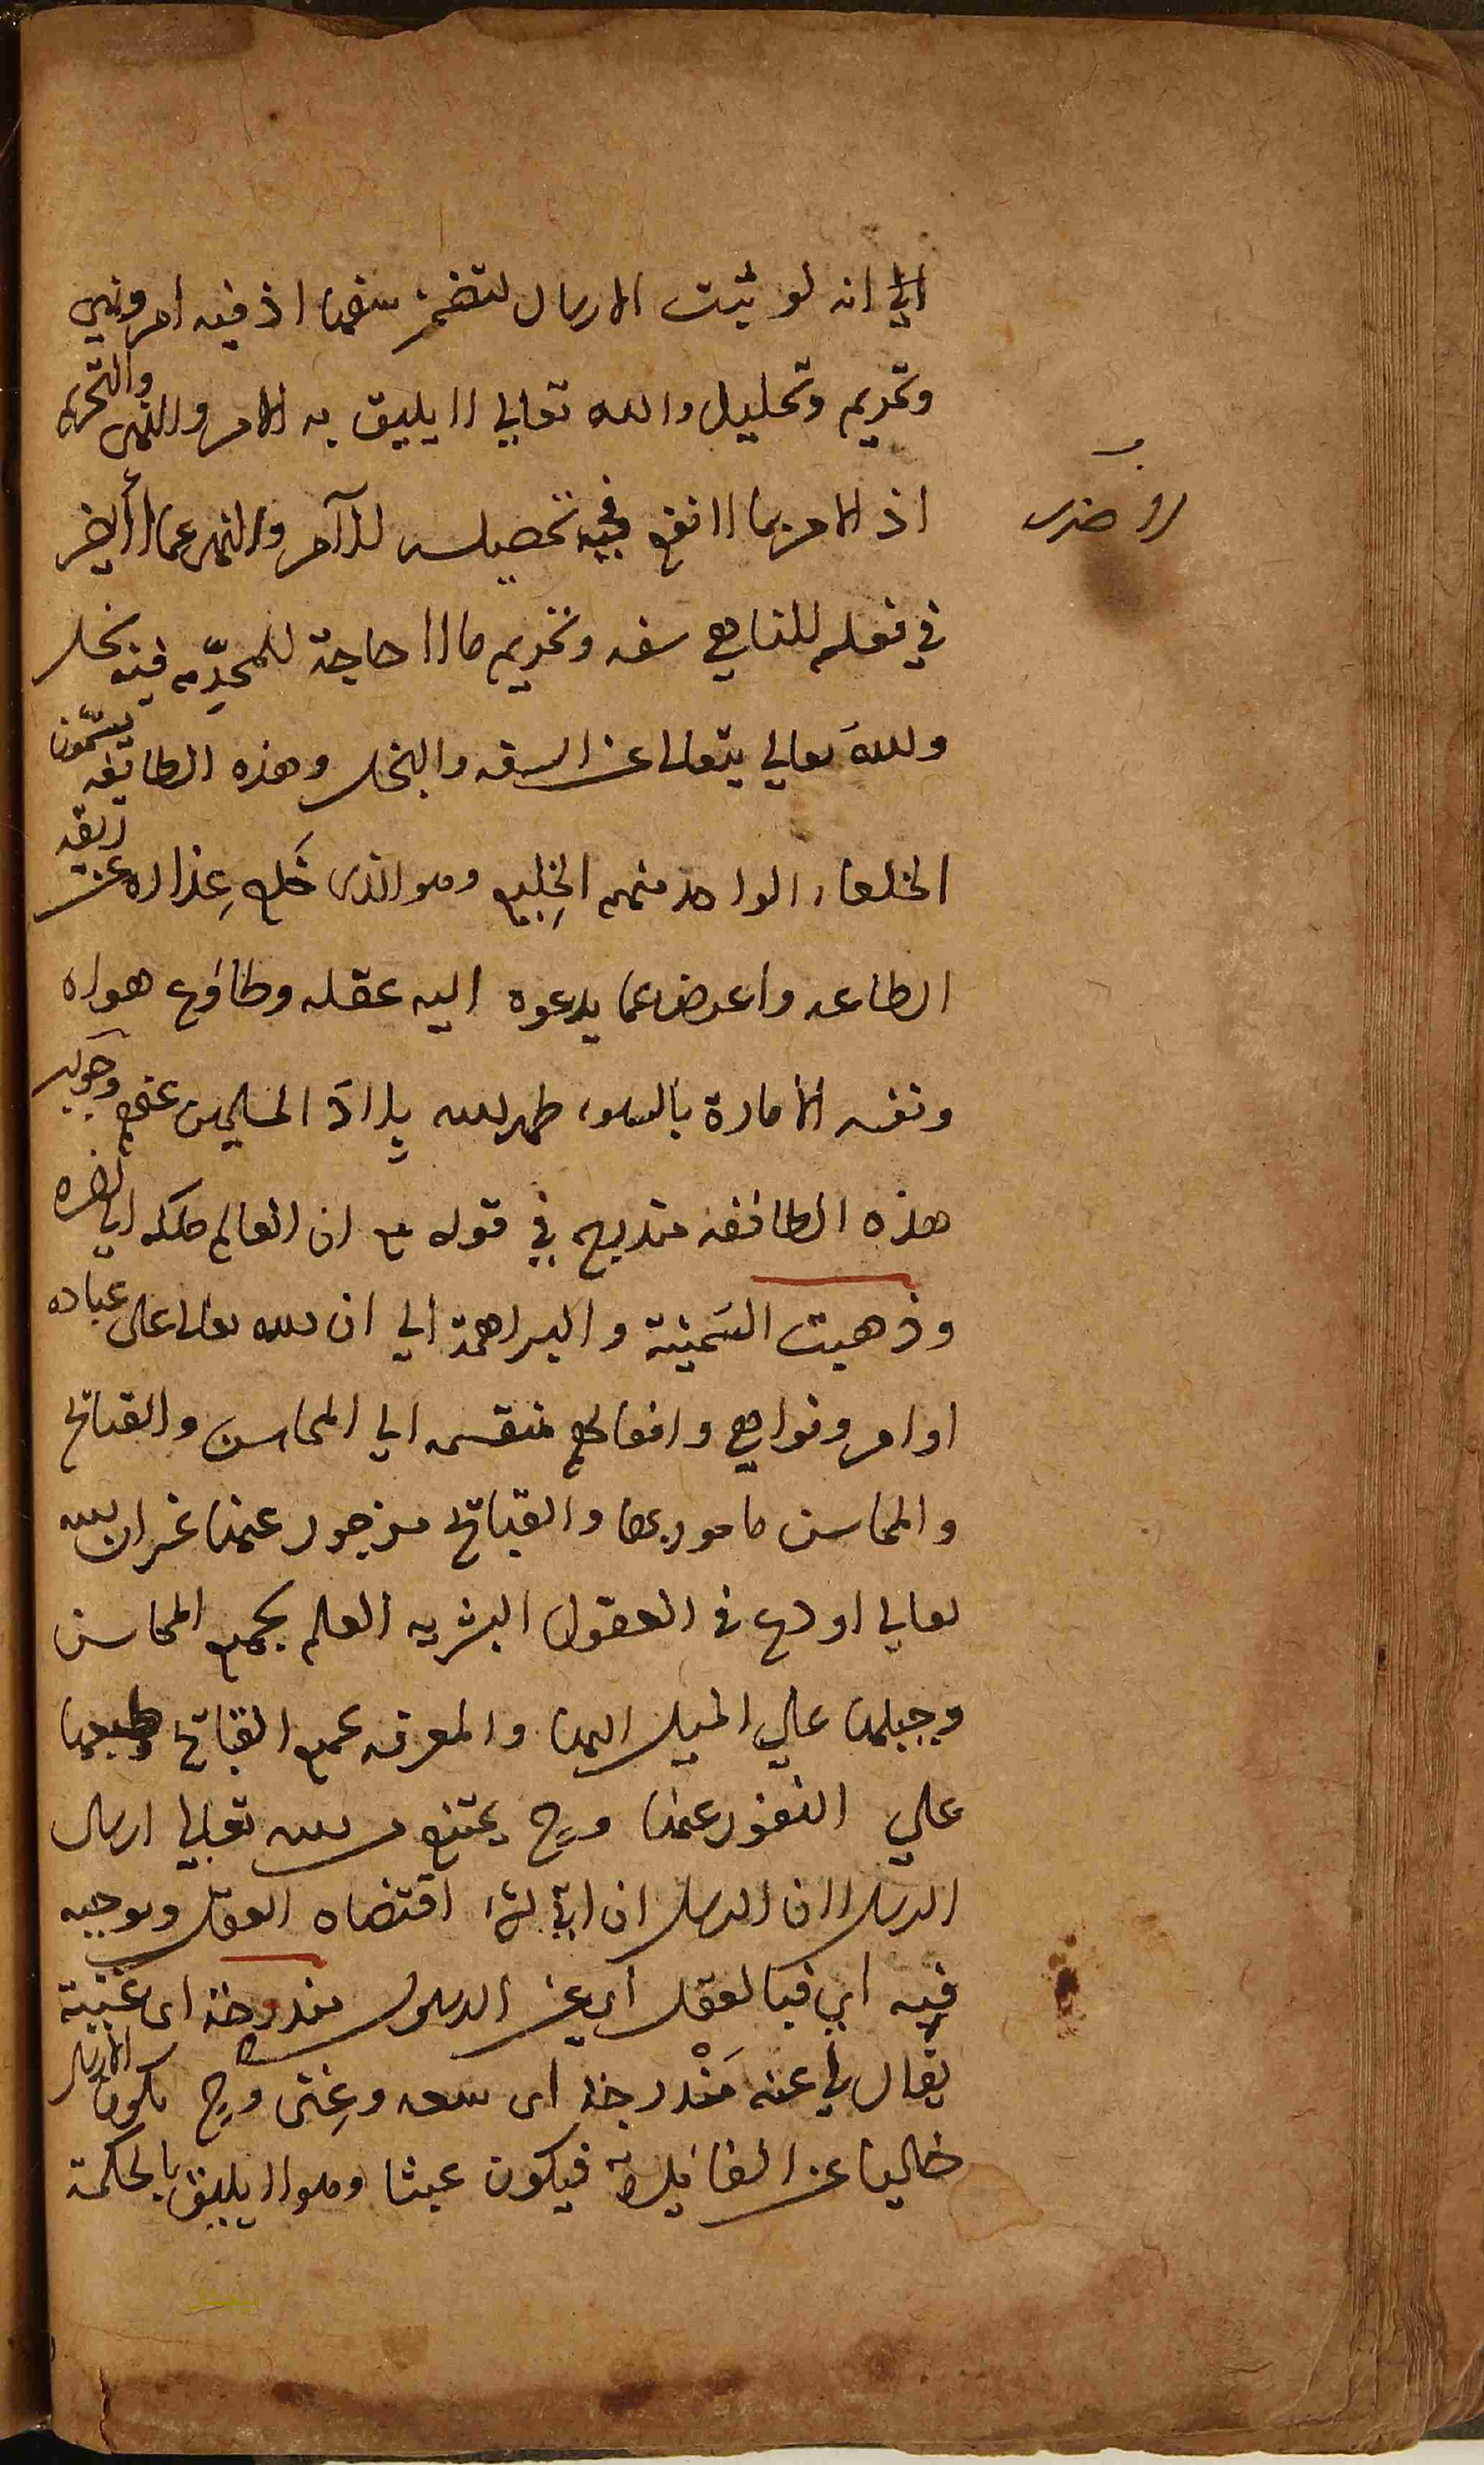 الي انه لو ثبت الارسال لتضمن سفها اذ فيه امر ونهي
وتحريم وتحليل والله تعالي لا يليق به الامر والنهى والتحريم
اذ الامر بما لا نفع فيه تحصيله للآمر والنهى عما لا
في فعله للناهي سفه وتحريم ما لا حاجة للمحرِّم فيه بخل
ولله تعالي يتعالى عن السفه والبخل وهذه الطايفه يسمّون
الخلعاء الواحد منهم الخليع وهو الذى خَلع عِذاره عن ربقه
الطاعه واعرض عما يدعوه اليه عقله وطاوع هواه
ونفسه الأمارة بالسوء طهر الله بلاد المسلمين عنهم وجواب
هذه الطائفه مندرج في قوله مع ان العالم ملكه الي اخره
وذهبت السَمنية والبراهمة الي ان لله تعالى على عباده
اوامر ونواهي وافعالهم منقسمه الي المحاسن والقبائح
والمحاسن مامور بها والقبائح مزجور عنها غير ان الله
تعالي اودع فى العقول البشريه العلم بجميع المحاسن
وجبلها علي الميل اليها والمعرفه بجميع القبائح وطبعها
علي النفور عنها وح يمتنع من الله تعالي ارسال
الرسل لان الرسل ان اتى بما اقتضاه العقل ويوجبه
فيه اي فبالعقل اي عن الرسول مندوحة اى غنية
يقال لي عنه مَنْدوحة اى سعه وغِنى وح يكون الارسال
خاليا عن الفائده فيكون عبثا وهو لا يليق بالحكمة